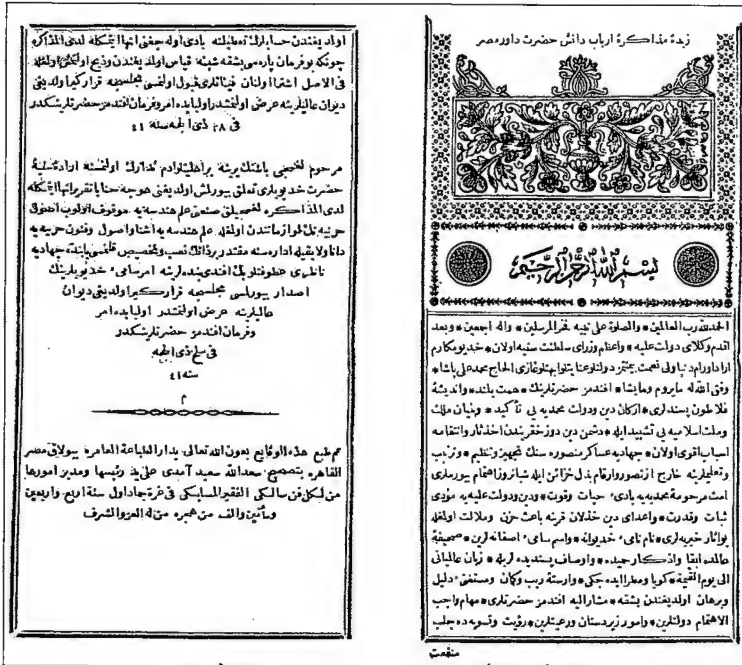 زبدۀ مذاكرۀ ارباب دانش حضرت داور مصر
بسم الله الرحمن الرحيم
الحمد لله رب العالمين * والصلوة على نبيه فخر المرسلين * واله اجمعين * وبعد
اقدم وكلاى دولت عليه * واعظم وزراى سلطنت سنيه اولان * خديو مكارم
ولى نعمت الحاج محمد على پاشا *
وفق الله له مايروم ومايشا * افندمز حضرتلرينك * همت بلند * وانديشۀ
فلاطون پسندلرى * اركان دين ودولت محمديه يى تأكيد * وبنيان ملك
وملت اسلاميه يى تشييد ايله * دشمن دين دوزخ قريندن اخذ ثار وانتقامه
اسباب اقوى اولان * جهاديه عساكر منصوره سنك تجهيز وتنظيم * وترتيب
وتعليملرينه خارج از تصور وارقام بذل خزائن ايله شبانروز اهتمام بيورملرى
امت مرحومۀ محمديه يه بادئ حيات وقوت * ودين ودولت عليه يه مؤدى
ثبات وقدرت * واعداى دين خذلان قرينه باعث حزن وملالت اولغله
بو آثار خيريه لرى * نام نامئ خديوانه * واسم سامئ اصفانه لرين * صحيفۀ
عالمده ابقا واذكار حميده * واوصاف پسنديده لريله * زبان عالميانى
الى يوم القيمة * كويا ايده جكى * وارستۀ ريب وكمان ومستغنئ دليل
وبرهان اولديغندن بشقه * مشار اليه افندمز حضرتلرى * مهام واجب
الاهتمام دولتلرين * وامور زيردستان ورعيتلرين * رؤيت وتسويه ده جلب
منفعت
اولديغندن حسابلرك تعطيلنه بادى اوله جغنى انها ايتمكله لدى المذاكره
چونكه بو فرمان پاره سى بشقه شيئه قياس اولديغندن
فى الاصل اولنان قبول اولنمسى مجلسجه قراركير اولديغى
ديوان عاليلرينه عرض اولنمشدر اولبابده امر وفرمان افندمز حضرتلرينكدر
فى ٢٨ ذى الحجه سنه ٤١
مرحوم يرينه بر اهليتلو ادم تدارك اولنمسنه ارادۀ سنيۀ
حضرت خديويلرى تعلق بيورلمش اولديغنى خواجه تقريرا انها ايتمكله
لدى المذاكره تحصيلى صنعتى علم هندسه يه موقوف اولوب اصول
حربيه نك لوازماتندن اولغله علم هندسه يه اشنا واصول وفنون حربيه يه
دانا اداره سنه مقتدر بر ذاتك نصب وتخصيص قلنمسى بابنده جهاديه
ناظرى عطوفتلو بك افندى بنده لرينه امر سامئ خديويلرينك
اصدار بيورلمسى مجلسجه قراركير اولديغى ديوان
عاليلرينه عرض اولنمشدر اولبابده امر
وفرمان افندمز حضرتلرينكدر
فى سلخ ذى الحجه
سنه ٤١
م
تم طبع هذه الوقايع بعون الله تعالى بدار الطباعة العامره ببولاق مصر
القاهره بتصحيح سعد الله سعيد آمدى على يد رئيسها ومدير امورها
من لكل فن سالكى الفقير المسابكى فى غرة جمادى اول سنة اربع واربعين
ومأتين والف من هجره من له العز والشرف